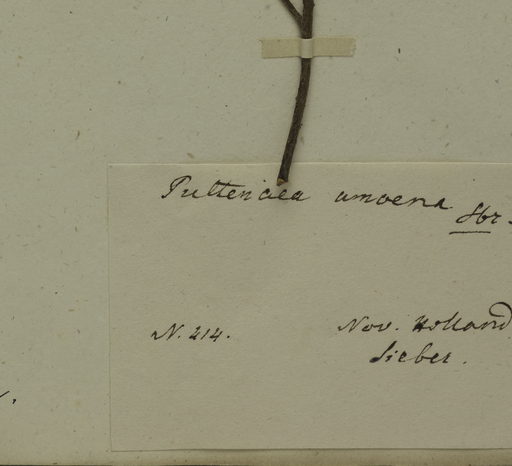 Pultenaea amoena Sbr.
N. 214. Nov. Holland
Sieber.